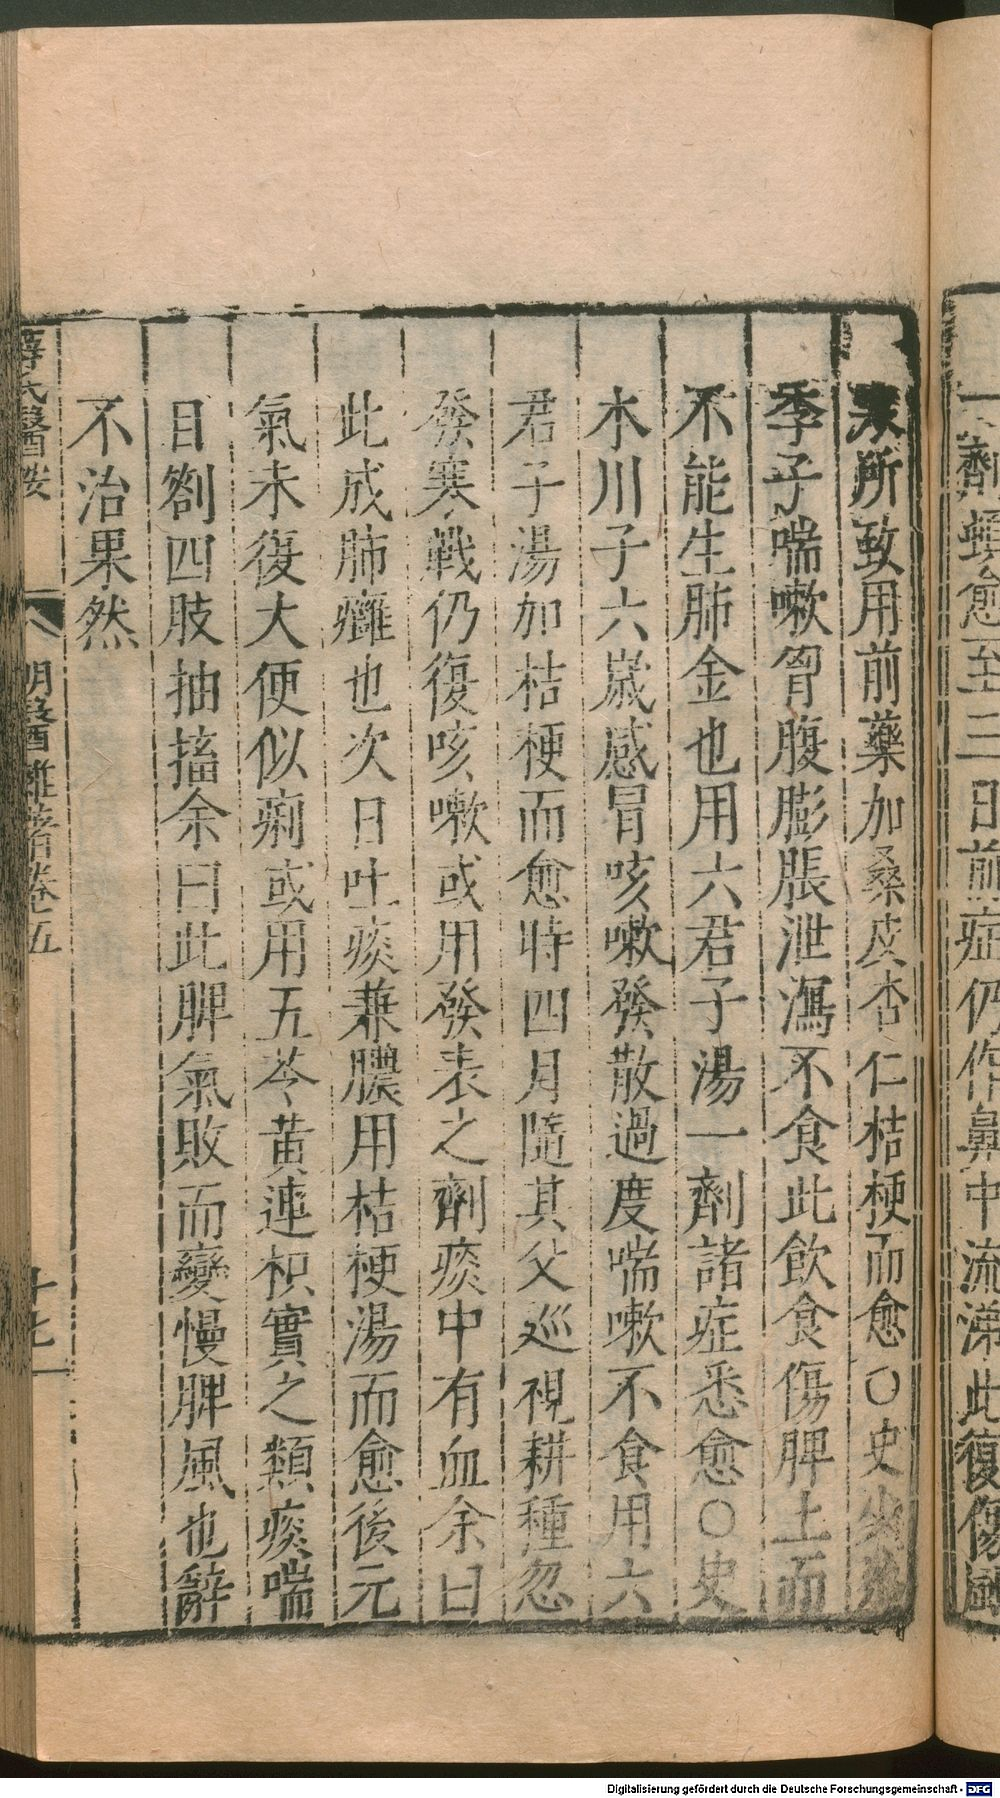 一劑頓愈至三日前症仍作鼻中流涕此復傷風
所致用前藥加桑皮杏仁桔梗而愈○史少
季子喘嗽胷腹膨脹泄瀉不食此飲食傷脾土而
不能生肺金也用六君子湯一劑諸症悉愈○史
木川子六歲感冒咳嗽發散過度喘嗽不食用六
君子湯加桔梗而愈時四月隨其父巡視耕種忽
發寒戰仍復咳嗽或用發表之劑痰中有血余曰
此成肺癰也次日吐痰兼膿用桔梗湯而愈後元
氣未復大便似痢或用五苓黃連枳實之類痰喘
目劄四肢抽搐余曰此脾氣敗而變慢脾風也辭
不治果然
薛氏醫按
明醫雜著卷五
十七
Digitalisierung gefördert durch die Deutsche Forschungsgemeinschaft - DFG